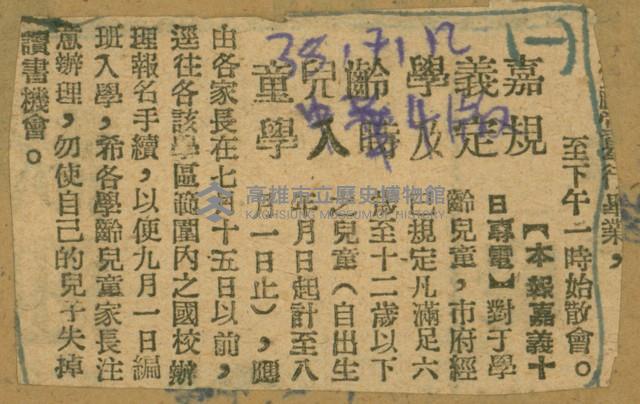 (一)
38.7.12
行畢業，
至下午一時始散會。
嘉義學齡兒童
規定及時入學
【本報嘉義十
日專電】對于學
齡兒童，市府經
已規定凡滿足六
歲至十二歲以下
之兒童（自出生
年月日起計至八
月一日止），應
由各家長在七月十五日以前，
逕往各該學區範圍內之國校辦
理報名手續，以便九月一日編
班入學，希各學齡兒童家長注
意辦理，勿使自己的兒子失掉
讀書機會。
高雄市立歷史博物館
KAOHSIUNG MUSEUM OF HISTORY